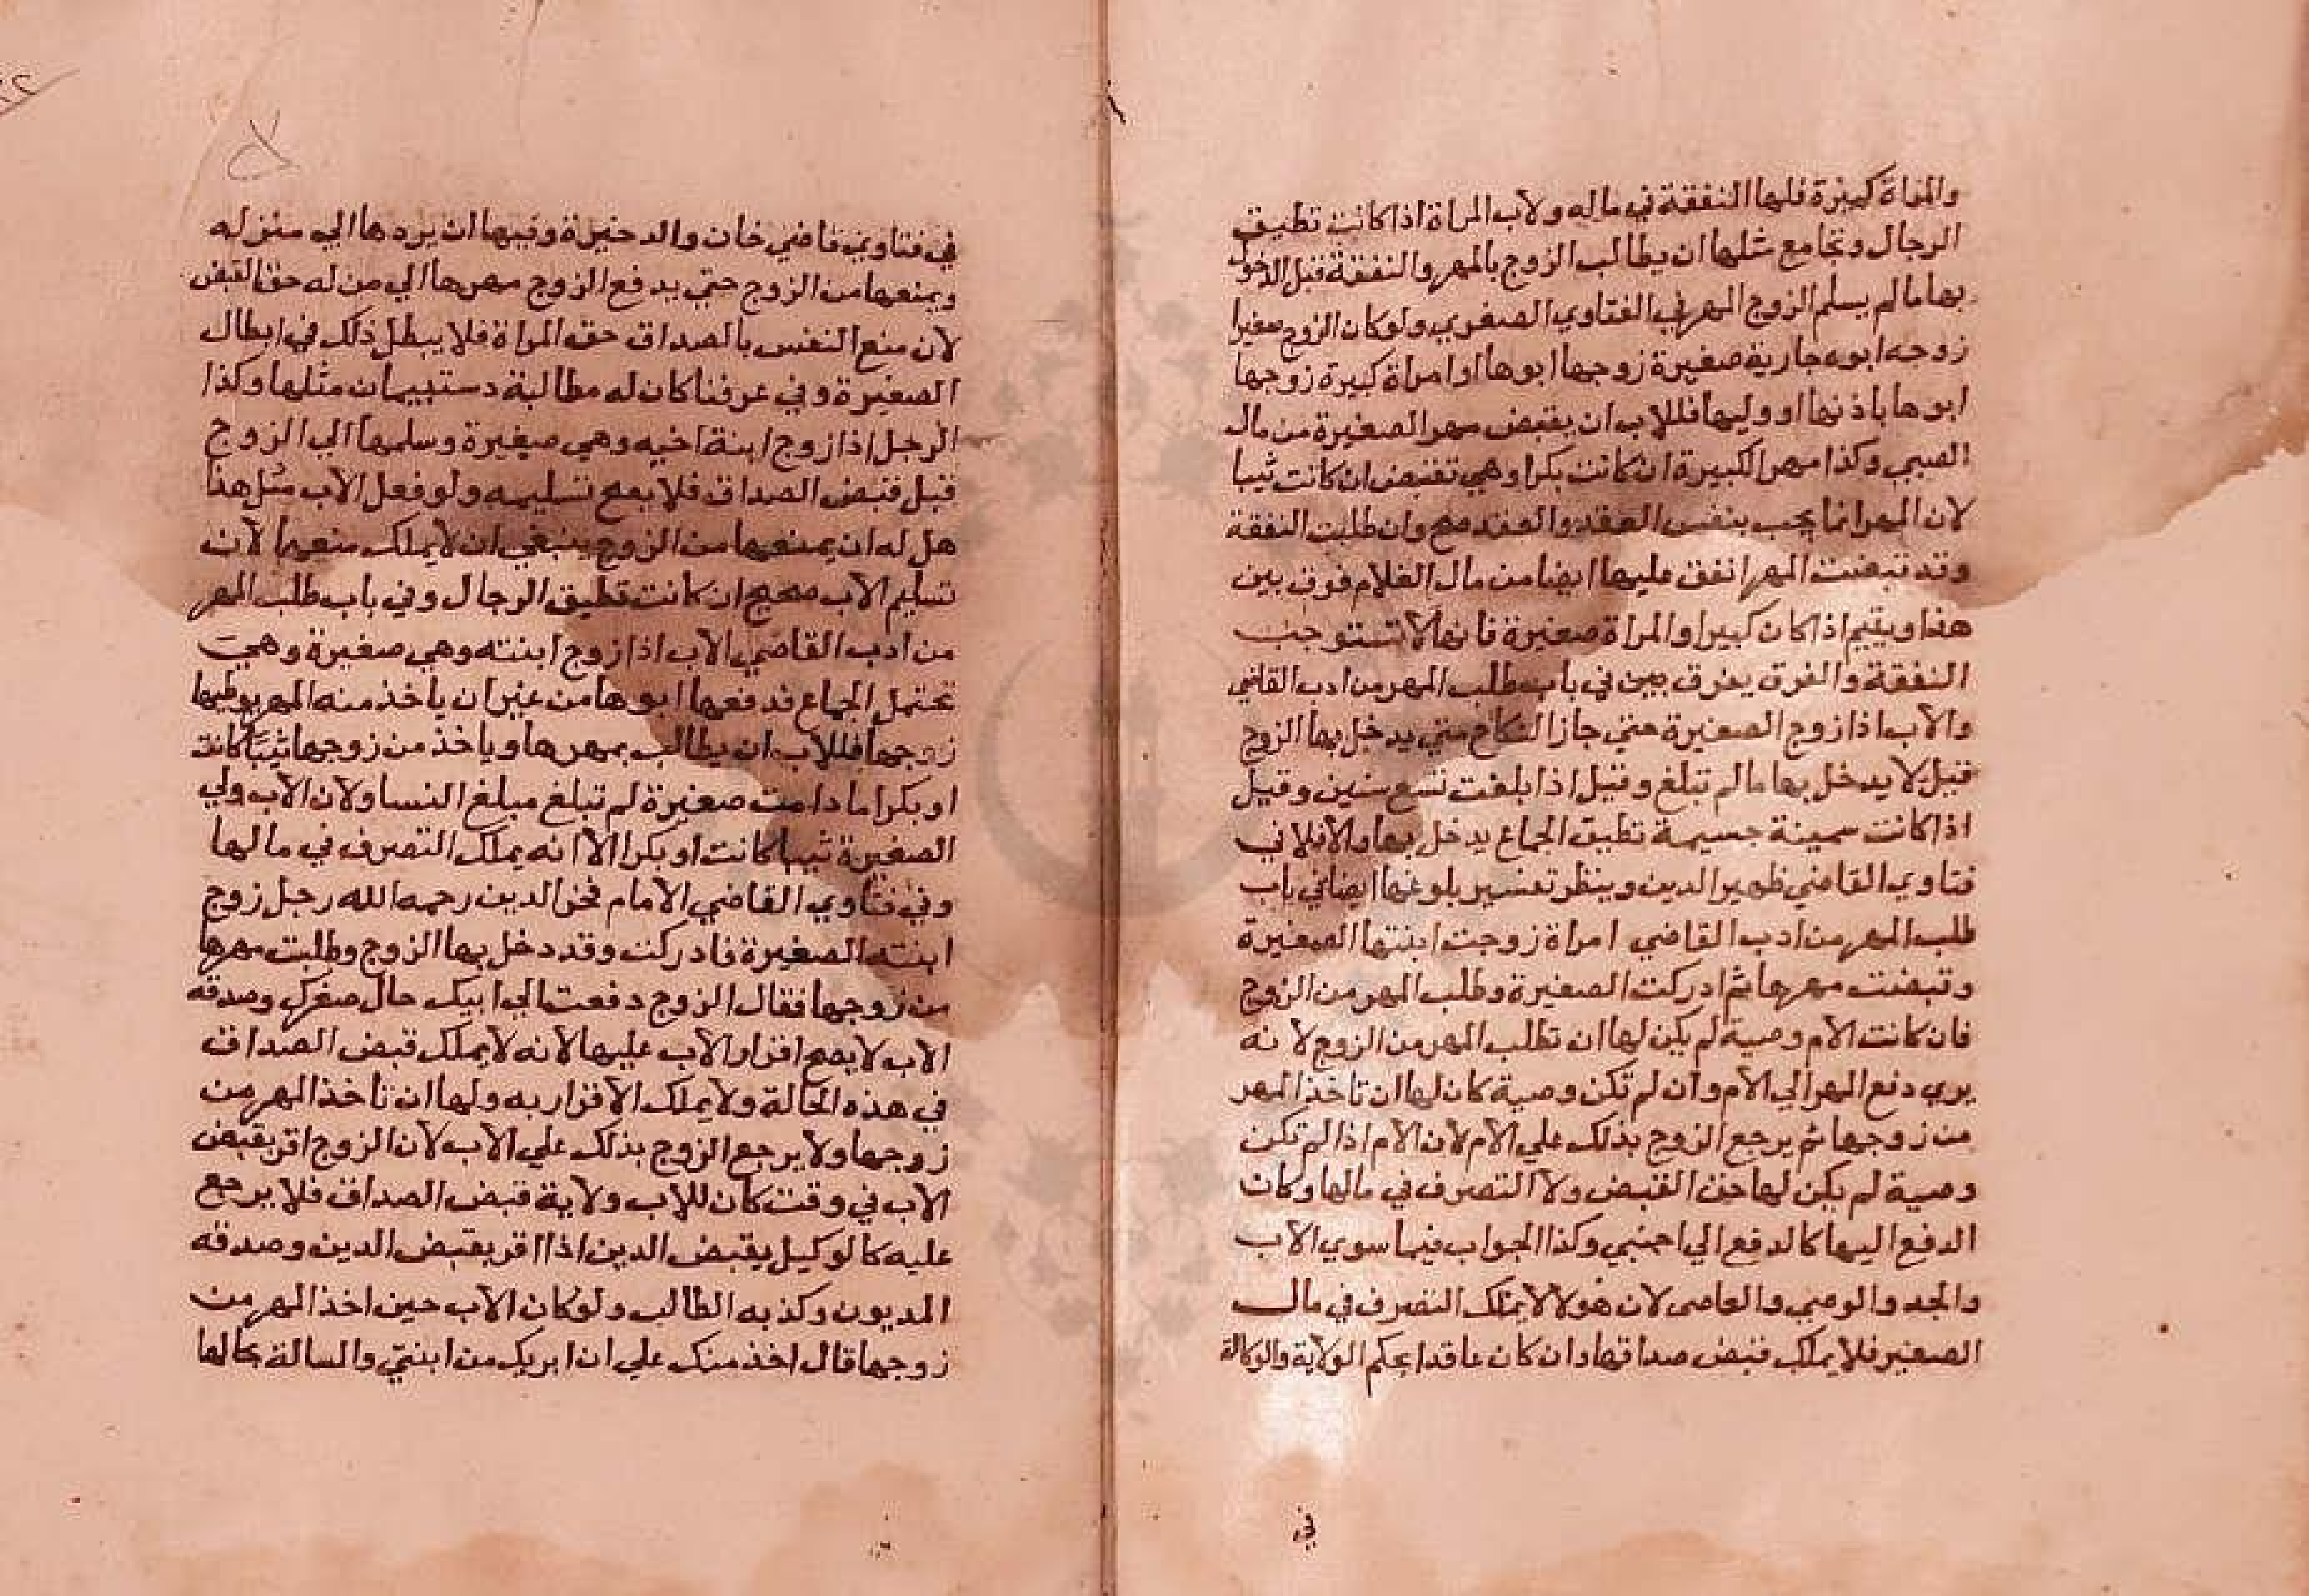 والمراة كبيرة فلها النفقة في ماله ولاب المراة اذا كانت تطيق
الرجال وتجامع مثلها ان يطالب الزوج بالمهر والنفقة قبل الدخول
بها مالم يسلم الزوج المهر في الفتاوي الصغري ولو كان الزوج صغيرا
زوجه ابوه جارية صغيرة زوجها ابوها او امراة كبيرة زوجها
ابوها باذنها او وليها فللاب ان يقبض مهر الصغيرة من مال
الصبي وكذا مهر الكبيرة ان كانت بكرا وهي تقبض ان كانت ثيبا
لان المهر انما يجب بنفس العقد والعقد صح وان طلبت النفقة
وقد قبضت المهر انفق عليها ايضا من مال الغلام فرق بين
هذا وبينم اذا كان كبيرا والمراة صغيرة فانها لا تستوجب
النفقة والفرق يعرف ببين في باب طلب المهر من ادب القاضي
والاب اذا زوج الصغيرة حتي جاز النكاح متي يدخل بها الزوج
قيل لا يدخل بها مالم تبلغ وقيل اذا بلغت تسع سنين وقيل
اذا كانت سمينة جسيمة تطيق الجماع يدخل بها والا فلا في
فتاوي القاضي ظهير الدين وينظر تفسير بلوغها ايضا في باب
طلب المهر من ادب القاضي امراة زوجت ابنتها الصغيرة
وقبضت مهرها ثم ادركت الصغيرة وطلب المهر من الزوج
فان كانت الام وصية لم يكن لها ان تطلب المهر من الزوج لانه
يري دفع المهر الي الام وان لم تكن وصية كان لها ان تاخذ المهر
من زوجها ثم يرجع الزوج بذلك علي الام لان الام اذا لم تكن
وصية لم يكن لها حق القبض ولا التصرف في مالها وكان
الدفع اليها كالدفع الي اجنبي وكذا الجواب فيما سوي الاب
والجد والوصي والقاضي لان هولا لا يملك التصرف في مال
الصغير فلا يملك قبض صداقها وان كان عاقدا بحكم الولاية والوكالة
في
في فتاوي قاضي خان والدخيرة وفيها ان يردها الي منزله
ويمنعها من الزوج حتي يدفع الزوج مهرها الي من له حق القبض
لان منع النفس بالصداق حق المراة فلا يبطل ذلك في ابطال
الصغيرة وفي عرفنا كان له مطالبة دستييمان مثلها وكذا
الرجل اذا زوج ابنة اخيه وهي صغيرة وسلمها الي الزوج
قبل قبض الصداق فلا يصح تسليمه ولو فعل الاب مثل هذا
هل له ان يمنعها من الزوج ينبغي ان لا يملك منعها لان
تسليم الاب صحيح ان كانت تطيق الرجال وفي باب طلب المهر
من ادب القاضي الاب اذا زوج ابنته وهي صغيرة وهي
تحتمل الجماع فدفعها ابوها من غير ان ياخذ منه المهر يوطيها
زوجها فللاب ان يطالب بمهرها وياخذ من زوجها ثيبا كانت
او بكرا ما دامت صغيرة لم تبلغ مبلغ النسا ولان الاب ولي
الصغيرة ثيبا كانت او بكرا الا انه يملك التصرف في مالها
وفي فتاوي القاضي الامام فخر الدين رحمه الله رجل زوج
ابنته الصغيرة فادركت وقد دخل بها الزوج وطلبت مهرها
من زوجها فقال الزوج دفعت الي ابيك حال صغرك وصدقه
الاب لا يصح اقرار الاب عليها لانه لا يملك قبض الصداق
في هذه الحالة ولا يملك الاقرار به ولها ان تاخذ المهر من
زوجها ولا يرجع الزوج بذلك علي الاب لان الزوج اقر بقبض
الاب في وقت كان للاب ولاية قبض الصداق فلا يرجع
عليه كالوكيل يقبض الدين اذا اقر بقبض الدين وصدقه
المديون وكذبه الطالب ولو كان الاب حين اخذ المهر من
زوجها قال اخذ منك علي ان ابريك من ابنتي والسالة بحالها